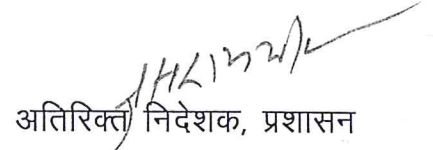 अतिरिक्त निदेशक, प्रशासन